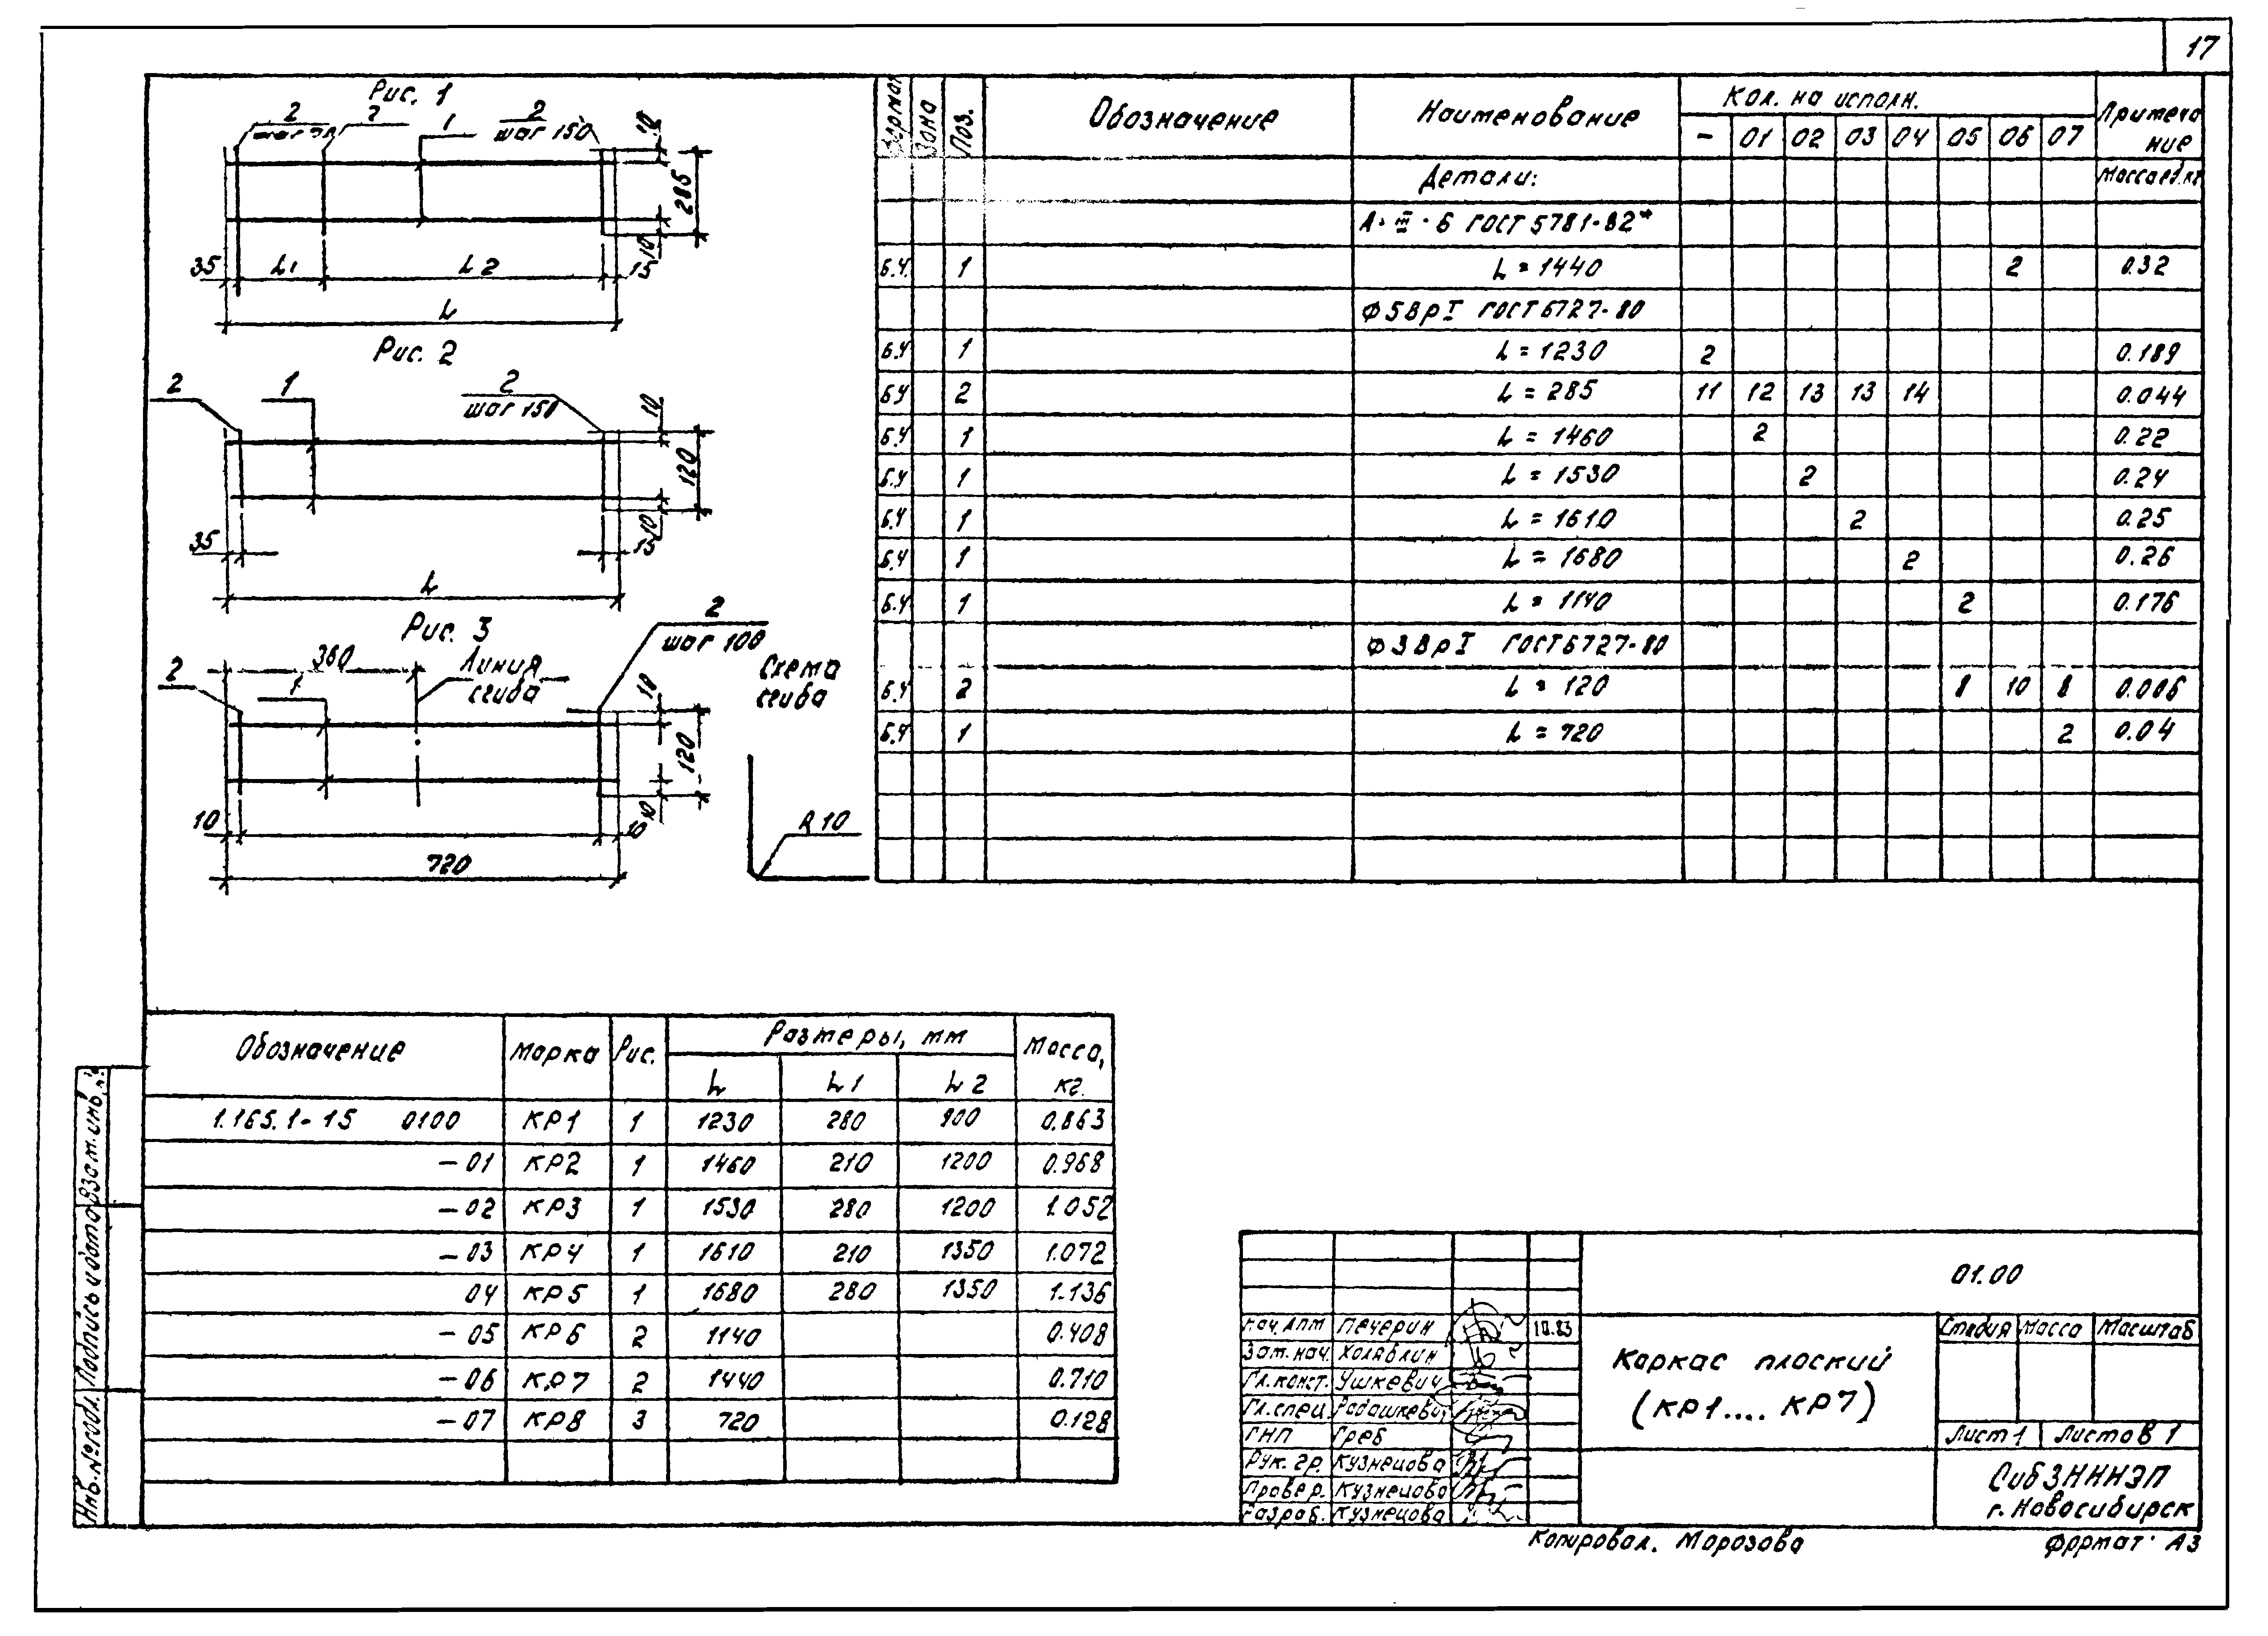 17
Рис. 1
2 2 1 2
шаг 150
10
285
10
35 L1 L2 15
L
Рис. 2
2 1 2
шаг 150
10
120
10
35 15
L
Рис. 3
2
шаг 100
360 Линия сгиба
2 1
10
120
10
10 10
720
Схема сгиба
R 10
Формат Зона Поз. Обозначение Наименование Кол. на исполн. Примечание
– 01 02 03 04 05 06 07
Детали: Масса ед. кг
А-III-6 ГОСТ 5781-82*
Б.Ч. 1 L = 1440 2 0.32
Ф5ВрI ГОСТ 6727-80
Б.Ч 1 L = 1230 2 0.189
Б.Ч 2 L = 285 11 12 13 13 14 0.044
Б.Ч 1 L = 1460 2 0.22
Б.Ч 1 L = 1530 2 0.24
Б.Ч 1 L = 1610 2 0.25
Б.Ч 1 L = 1680 2 0.26
Б.Ч 1 L = 1140 2 0.176
Ф3ВрI ГОСТ 6727-80
Б.Ч 2 L = 120 8 10 8 0.006
Б.Ч 1 L = 720 2 0.04
Обозначение Марка Рис. Размеры, мм Масса, кг.
L L1 L2
1.165.1-15 0100 КР1 1 1230 280 900 0.863
–01 КР2 1 1460 210 1200 0.968
–02 КР3 1 1530 280 1200 1.052
–03 КР4 1 1610 210 1350 1.072
04 КР5 1 1680 280 1350 1.136
–05 КР6 2 1140 0.408
–06 КР7 2 1440 0.710
–07 КР8 3 720 0.128
Взам. инв. №
Подпись и дата
Инв. № подл.
01.00
Нач. АПМ Печерин 10.83
Зам. нач. Холяблин
Гл. конст. Ушкевич
Гл. спец. Радашкевич
ГИП Греб
Рук. гр. Кузнецова
Провер. Кузнецова
Разраб. Кузнецова
Каркас плоский
(КР1.... КР7)
Стадия Масса Масштаб
Лист 1 Листов 1
СибЗНИИЭП
г. Новосибирск
Копировал. Морозова
Формат· А3